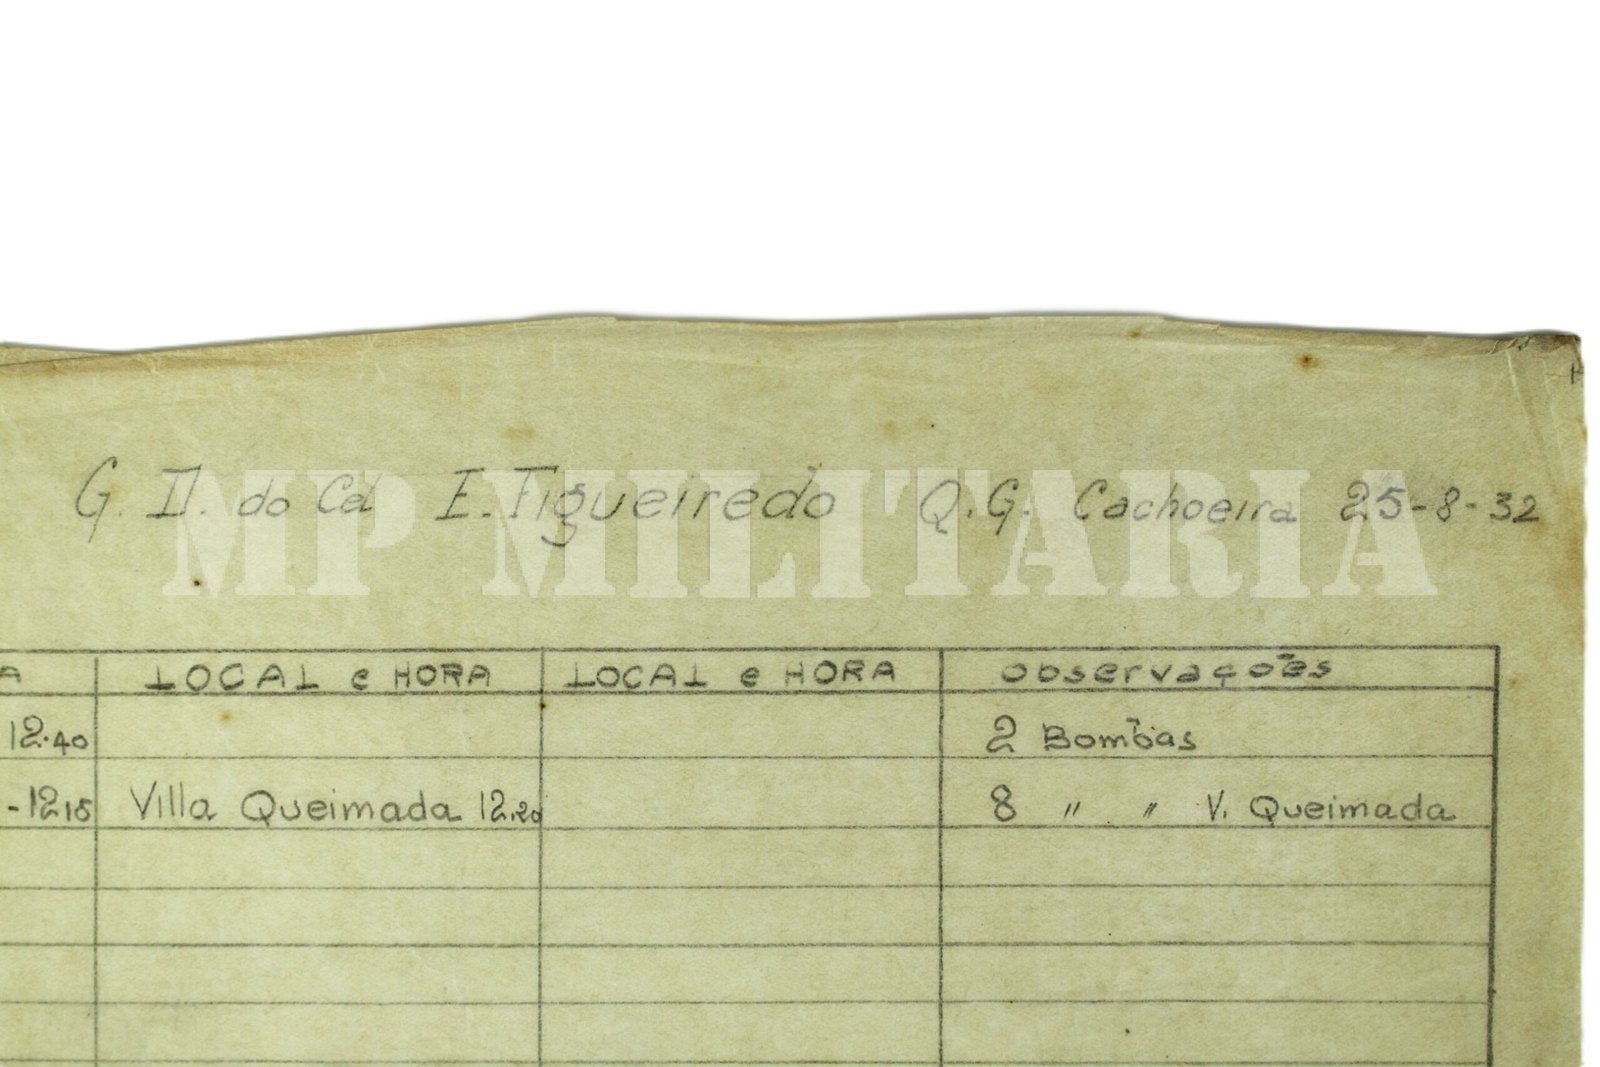 G. D. do Cel E. Figueiredo Q.G. Cachoeira 25-8-32
MP MILITARIA
A LOCAL e HORA LOCAL e HORA Observações
12.40 2 Bombas
-12.15 Villa Queimada 12.20 8 " " V. Queimada